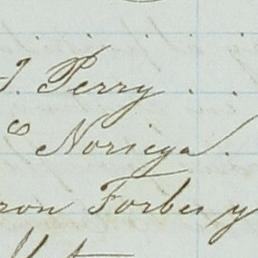 J. Perry . .
co Noriega .
ron Forbes y